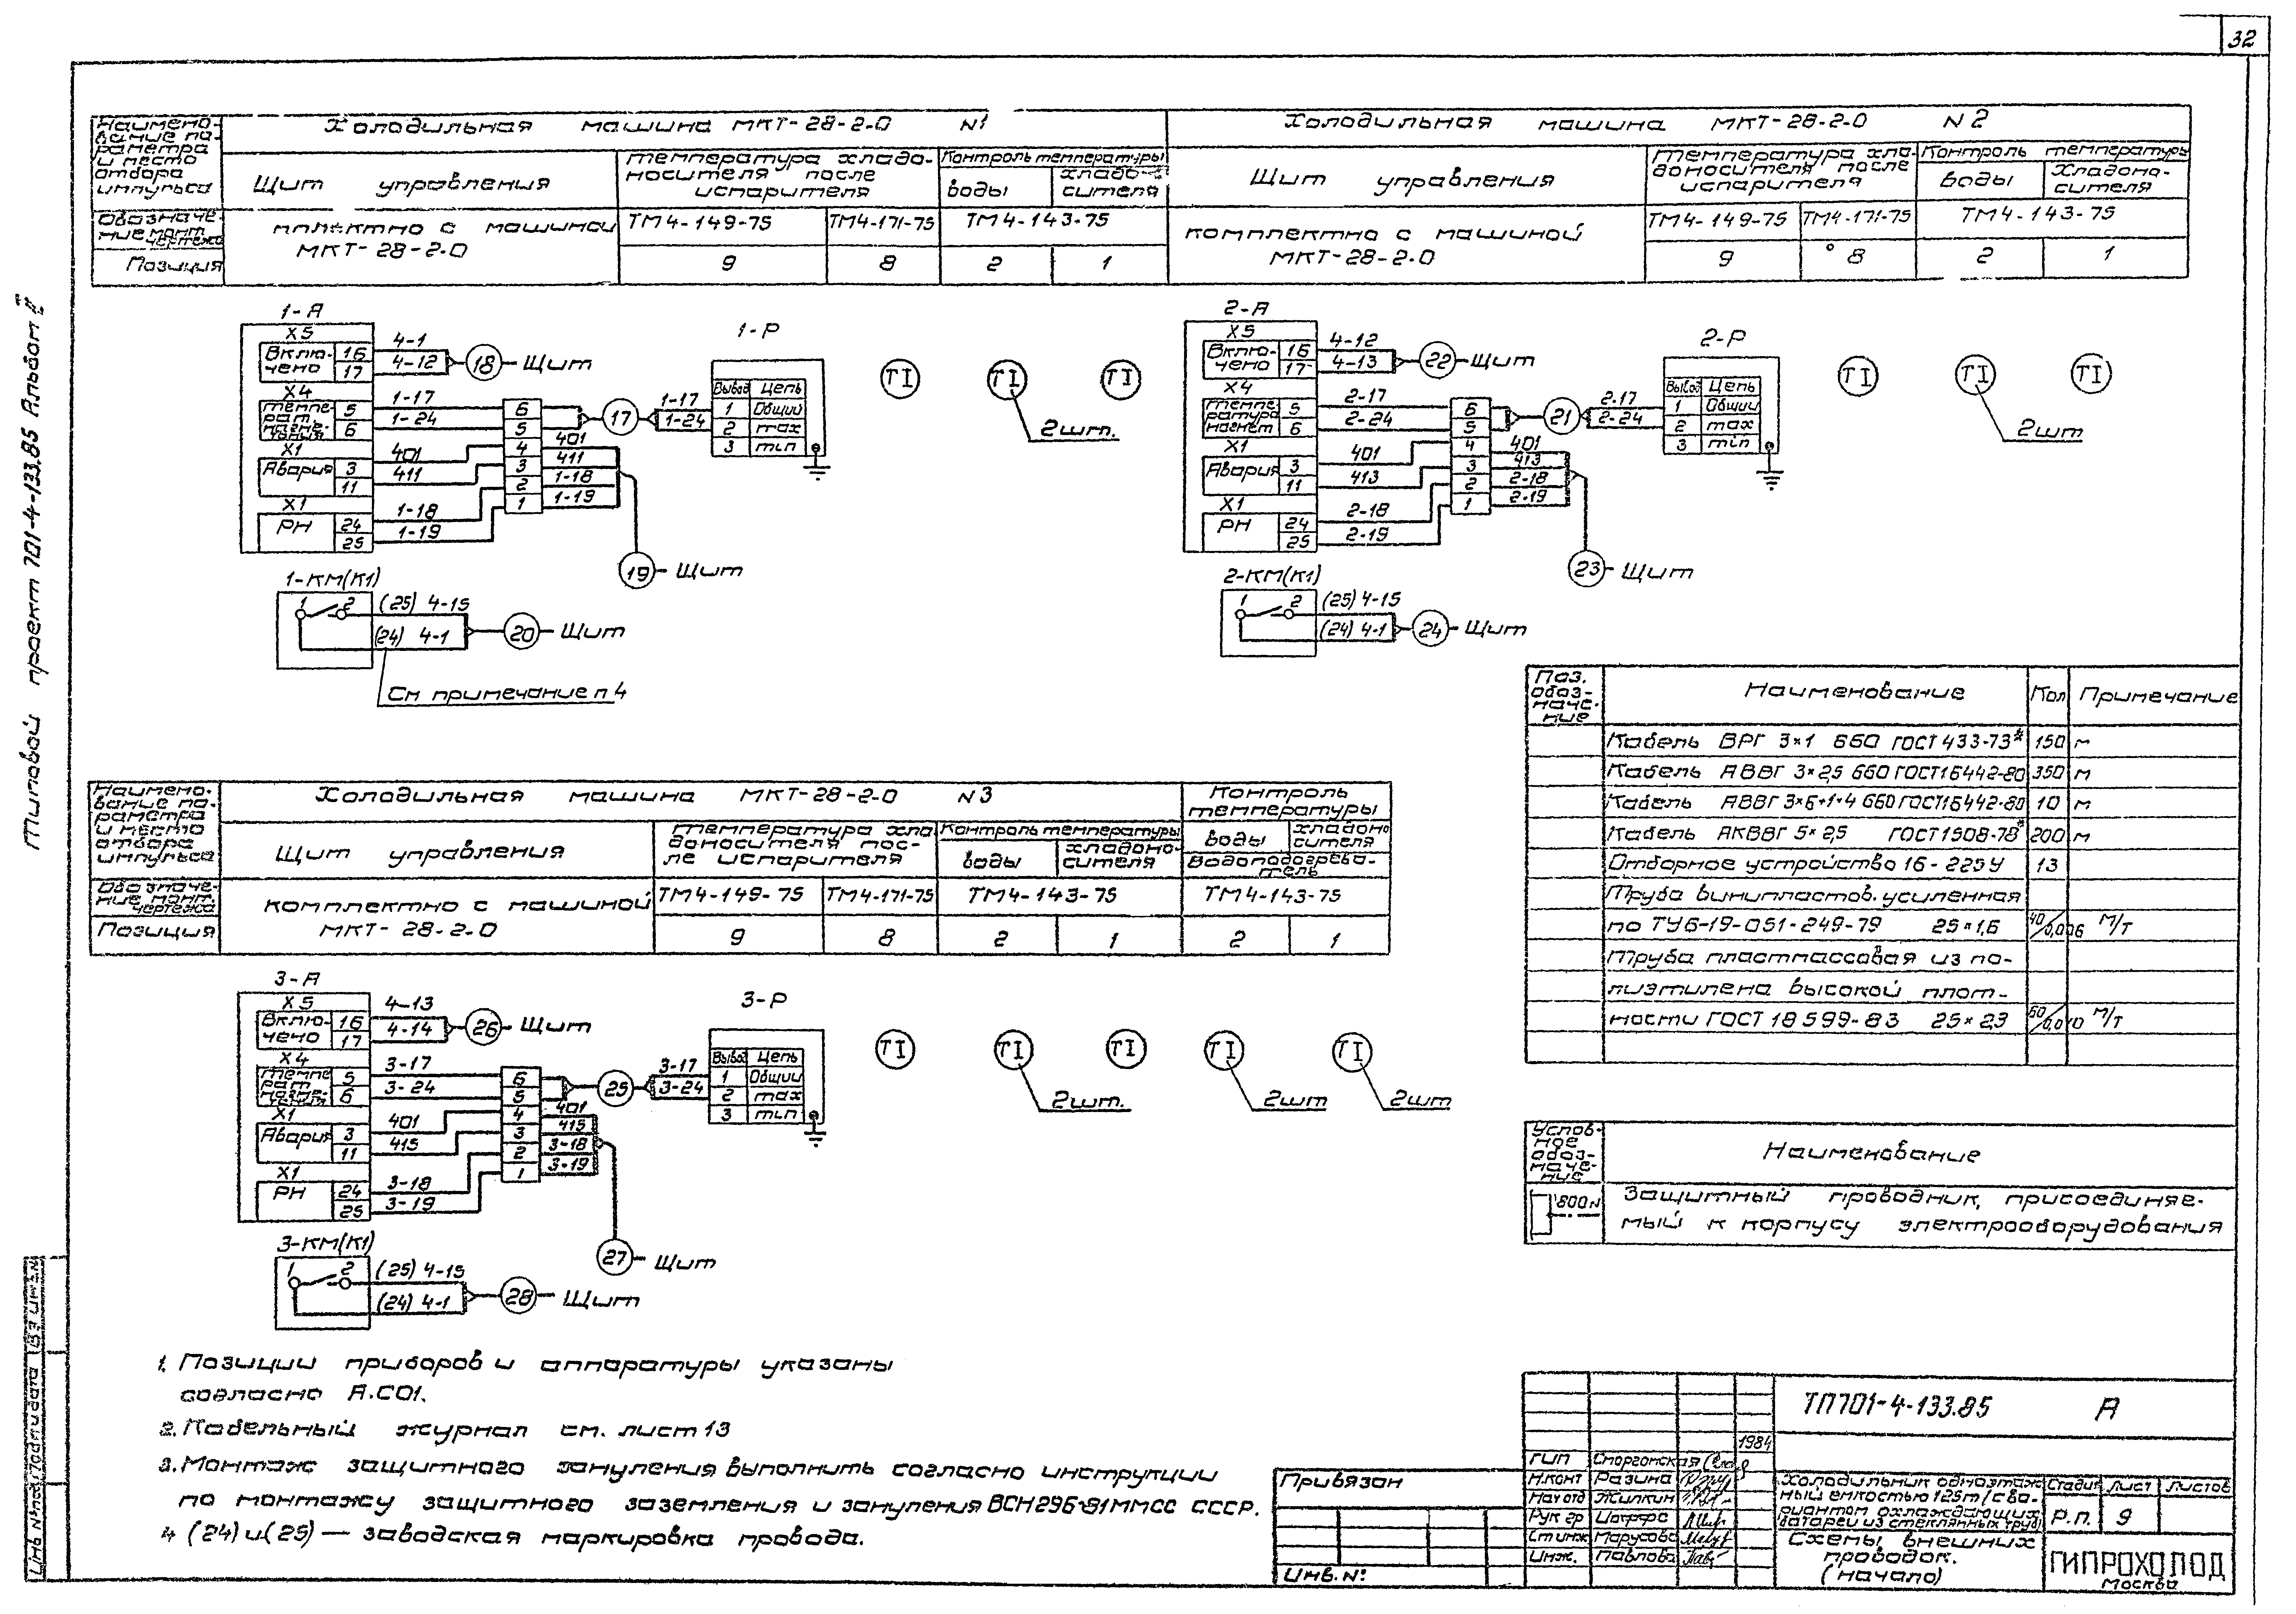 32
Типовой проект 701-4-133.85 Альбом II
Наимено-
вание па-
раметра
и место
отбора
импульса
Холодильная машина МКТ-28-2-0 N1
Холодильная машина МКТ-28-2-0 N2
Щит управления
Температура хладо-
носителя после
испарителя
Контроль температуры
воды
хладо-
сителя
Щит управления
Температура хла-
доносителя после
испарителя
Контроль температуры
воды
хладоно-
сителя
Обозначе-
ние монт.
чертежа
плектно с машиной
МКТ-28-2-0
ТМ4-149-75
ТМ4-171-75
ТМ4-143-75
комплектно с машиной
МКТ-28-2-0
ТМ4-149-75
ТМ4-171-75
ТМ4-143-75
Позиция
9
8
2
1
9
8
2
1
1-А
X5
Включе-
чено
16
17
4-1
4-12
18
Щит
X4
Темпе-
рат
нагне-
тания
5
6
1-17
1-24
X1
Авария
3
11
401
411
X1
РН
24
25
1-18
1-19
6
5
4
3
2
1
401
411
1-18
1-19
17
1-17
1-24
19
Щит
1-Р
Вывод Цепь
1 Общий
2 max
3 min
TI
TI
TI
2шт.
1-КМ(К1)
1
2
(25) 4-15
(24) 4-1
20
Щит
См примечание п 4
2-А
X5
Вклю-
чено
16
17
4-12
4-13
22
Щит
X4
Темпе
ратура
нагнет
5
6
2-17
2-24
X1
Авария
3
11
401
413
X1
РН
24
25
2-18
2-19
6
5
4
3
2
1
401
413
2-18
2-19
21
2-17
2-24
23
Щит
2-Р
Вывод Цепь
1 Общий
2 max
3 min
TI
TI
TI
2шт
2-КМ(К1)
1
2
(25) 4-15
(24) 4-1
24
Щит
Поз.
обоз-
наче-
ние
Наименование
Кол
Примечание
Кабель ВРГ 3×1 660 ГОСТ 433-73* 150 м
Кабель АВВГ 3×2,5 660 ГОСТ16442-80 350 м
Кабель АВВГ 3×6+1×4 660 ГОСТ16442-80 10 м
Кабель АКВВГ 5×2,5 ГОСТ1508-78* 200 м
Отборное устройство 16-225У 13
Труба винипластов. усиленная
по ТУ6-19-051-249-79 25×1,6 40/0,006 м/т
Труба пластмассовая из по-
лиэтилена высокой плот-
ности ГОСТ 18599-83 25×2,3 60/0,010 м/т
Услов-
ное
обоз-
наче-
ние
Наименование
800N
Защитный проводник, присоединяе-
мый к корпусу электрооборудования
Наимено-
вание па-
раметра
и место
отбора
импульса
Холодильная машина МКТ-28-2-0 N3
Контроль
температуры
Щит управления
Температура хла-
доносителя пос-
ле испарителя
Контроль температуры
воды
хладоно-
сителя
воды
хладоно
сителя
Водоподогрева-
тель
Обозначе-
ние монт.
чертежа
комплектно с машиной
МКТ-28-2-0
ТМ4-149-75
ТМ4-171-75
ТМ4-143-75
ТМ4-143-75
Позиция
9
8
2
1
2
1
3-А
X5
Вклю-
чено
16
17
4-13
4-14
26
Щит
X4
Темпе
рат
нагне-
тания
5
6
3-17
3-24
X1
Авария
3
11
401
415
X1
РН
24
25
3-18
3-19
6
5
4
3
2
1
401
415
3-18
3-19
25
3-17
3-24
27
Щит
3-Р
Вывод Цепь
1 Общий
2 max
3 min
TI
TI
TI
TI
TI
2шт.
2шт
2шт
3-КМ(К1)
1
2
(25) 4-15
(24) 4-1
28
Щит
1. Позиции приборов и аппаратуры указаны
согласно А.СО1.
2. Кабельный журнал см. лист 13
3. Монтаж защитного зануления выполнить согласно инструкции
по монтажу защитного заземления и зануления ВСН296-81 ММСС СССР.
4 (24) и (25) — заводская маркировка провода.
Привязан
Инв. №
1984
ТП701-4-133.85 А
ГИП Сморгонская
Н.конт Разина
Нач отд Жилкин
Рук гр
Ст инж Марусова
Инж. Павлова
Холодильник одноэтаж-
ный емкостью 125т/с ва-
риантом охлаждающих
батарей из стеклянных труб/
Стадия Лист Листов
Р.П. 9
Схемы внешних
проводок.
(начало)
ГИПРОХОЛОД
Москва
Инв №подл. Подп и дата Вз инв.№